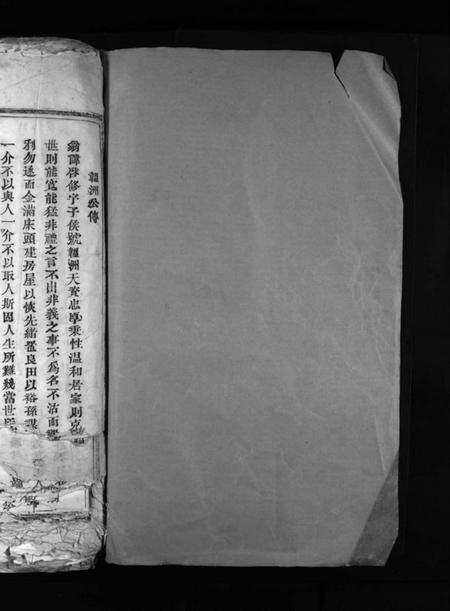 韞洲公傳
翁諱啓修字子侯號韞洲天資忠厚秉性溫和居家則克
世則能寬能猛非禮之言不出非義之事不為名不沽而
利勿逐而金滿床頭建房屋以恢先緒置良田以裕孫謀
一介不以與人一介不以取人斯固人生所難幾當世